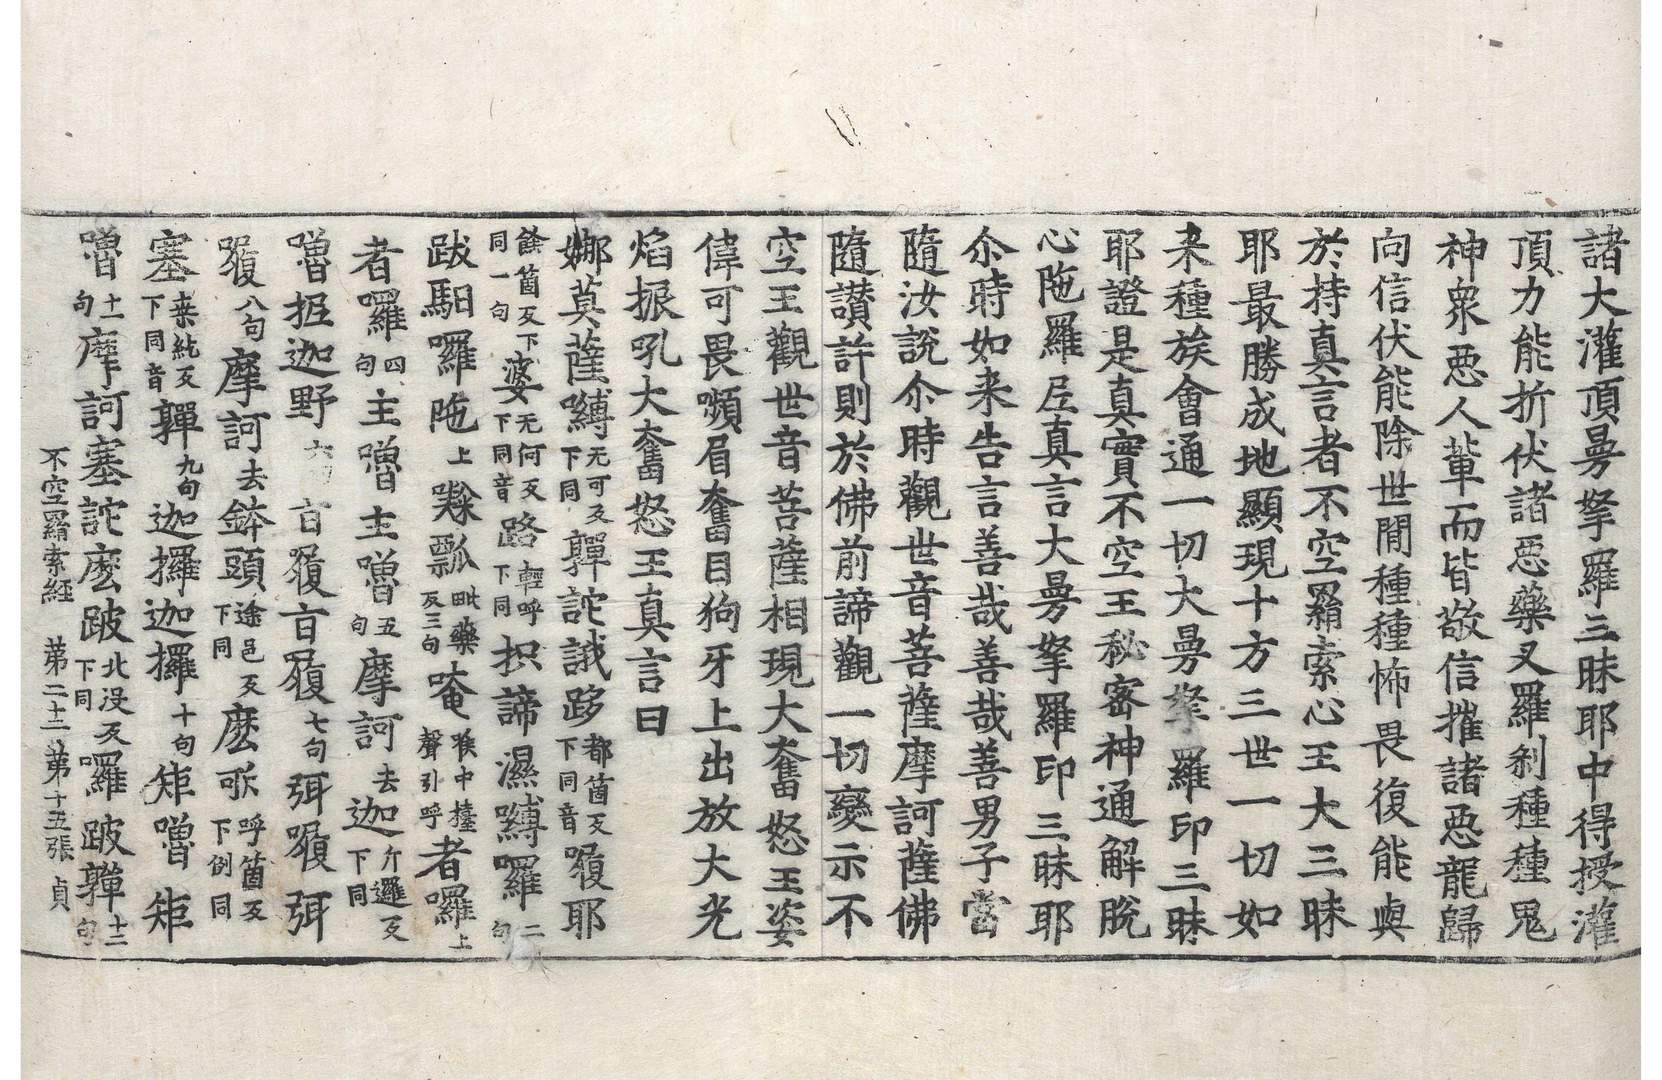 諸大灌頂曼拏羅三昧耶中得授灌
頂力能折伏諸惡藥叉羅刹種種鬼
神衆惡人軰而皆敬信摧諸惡龍歸
向信伏能除世間種種怖畏復能與
於持真言者不空羂索心王大三昧
耶最勝成地顯現十方三世一切如
来種族會通一切大曼拏羅印三昧
耶證是真實不空王秘密神通解脫
心陁羅𡰱真言大曼拏羅印三昧耶
尒時如来告言善哉善哉善男子當
隨汝說尒時觀世音菩薩摩訶薩佛
隨讃許則於佛前諦觀一切變示不
空王觀世音菩薩相現大奮怒王姿
偉可畏嚬眉奮目狗牙上出放大光
焰振吼大奮怒王真言曰
娜莫薩嚩无可反下同鄿詑誐跢都箇反下同音㘑耶
餘箇反下同一句婆无何反下同音路輕呼下同枳諦濕嚩囉二句
跋馹囉陁上㘑瓢毗藥反三句唵喉中擡聲引呼者囉上
者囉四句主嚕主嚕五句摩訶去迦斤邏反下同
嚕抳迦野六句㫑㘑㫑㘑七句弭㘑弭
㘑八句摩訶去鉢頭途邑反下同麽㰤呼箇反下例同
塞桒純反下同音鄿九句迦攞迦攞十句矩嚕矩
嚕十一句摩訶塞詑麽跛北没反下同囉跛鄿十二句
不空羂索経　苐二十二　苐十五張　貞